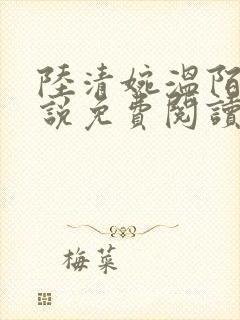 陸清婉溫陌
說免費閱讀
梅菜